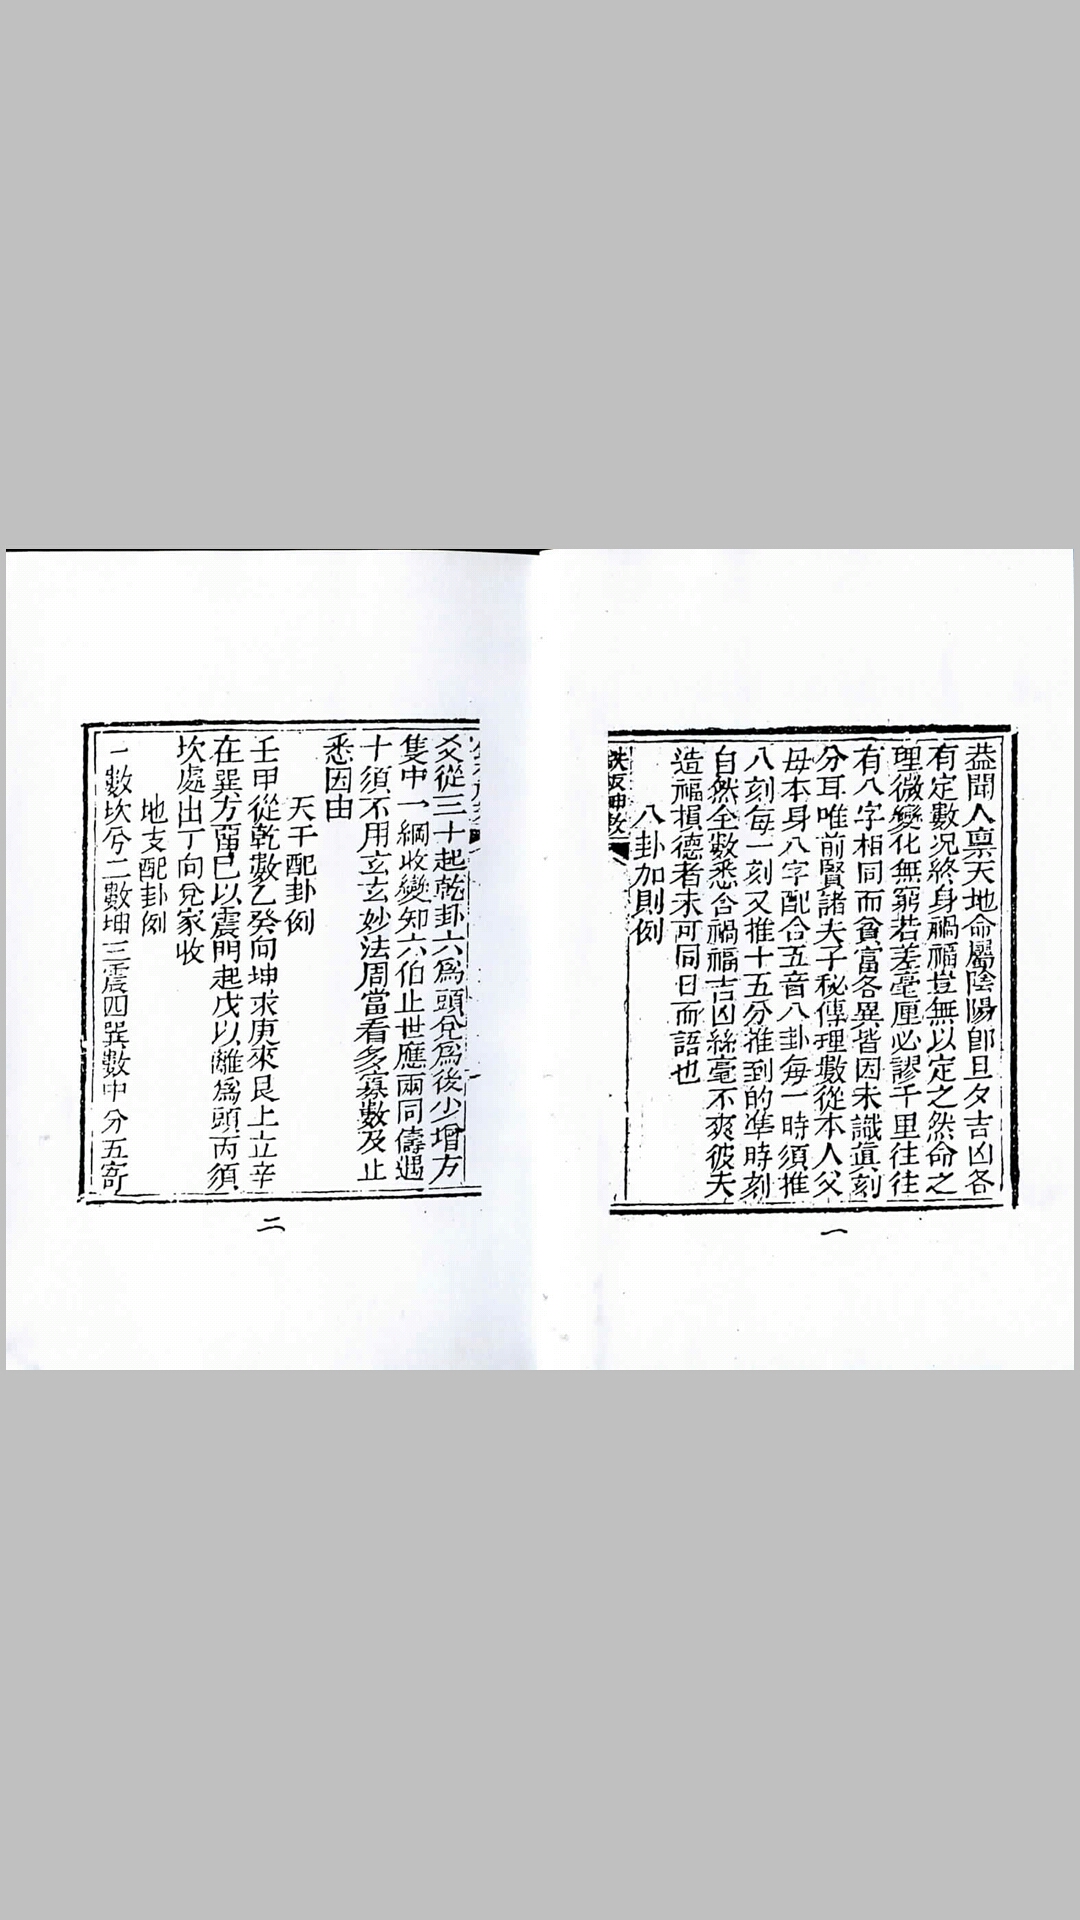 葢聞人禀天地命屬陰陽卽旦夕吉凶各
有定數况終身禍福豈無以定之然命之
理微變化無窮若差毫厘必謬千里往往
有八字相同而貧富各異皆因未識眞刻
分耳唯前賢諸夫子秘傳理數從本人父
毋本身八字配合五音八卦每一時須推
八刻每一刻又推十五分推到的準時刻
自然全數悉合禍福吉凶絲毫不爽彼夫
造福損德者未可同日而語也
八卦加則例
鉄板神数
一
爻從三十起乾卦六爲頭兌爲後少增方
隻中一綱收變知六伯止世應兩同儔遇
十須不用玄玄妙法周當看多寡數及止
悉因由
天干配卦例
壬甲從乾數乙癸向坤求庚來艮上立辛
在巽方畱已以震門起戊以離爲頭丙須
坎處出丁向兌家收
地支配卦例
一數坎兮二數坤三震四巽數中分五寄
二